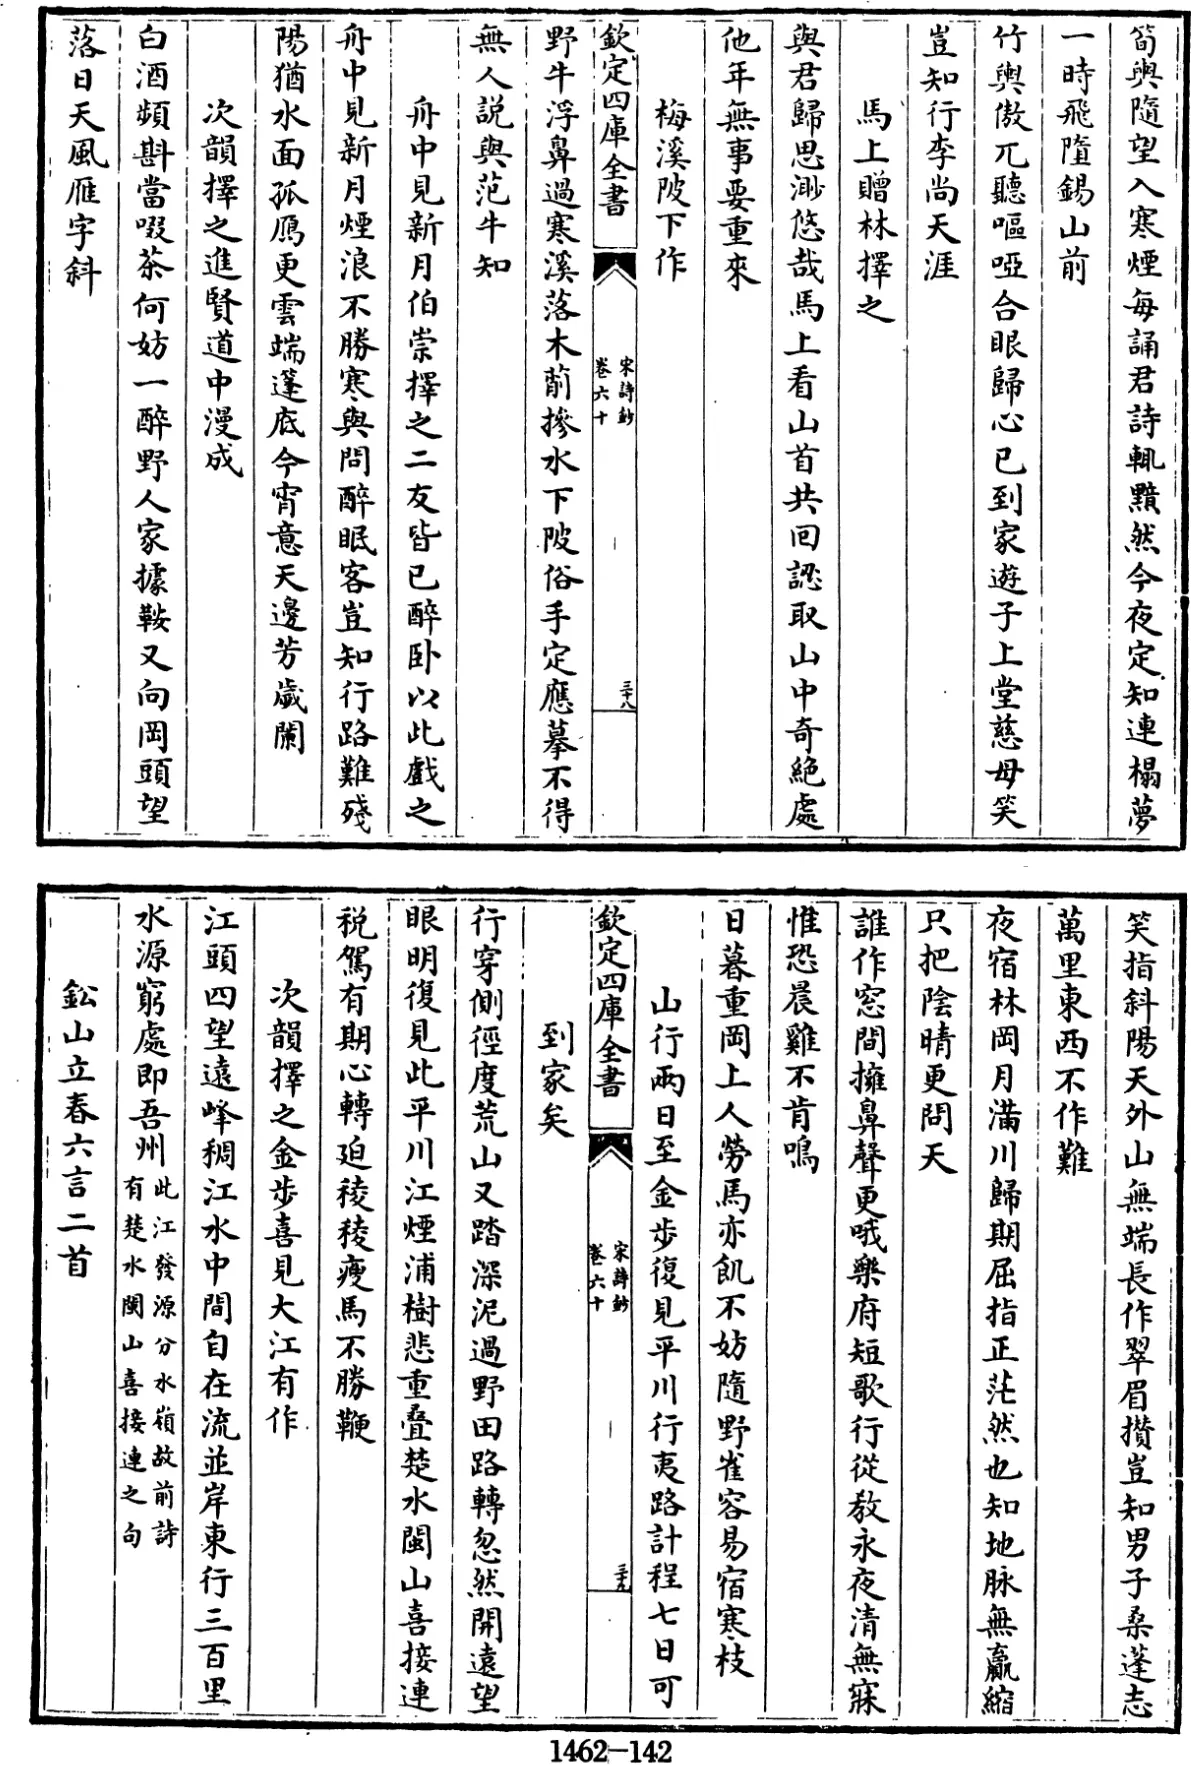 筍輿隨望入寒煙每誦君詩輒黯然今夜定知連榻夢
一時飛墮錫山前
竹輿傲兀聽嘔啞合眼歸心已到家遊子上堂慈母笑
豈知行李尚天涯
馬上贈林擇之
與君歸思渺悠哉馬上看山首共回認取山中奇絶處
他年無事要重來
梅溪陂下作
欽定四庫全書
宋詩鈔
卷六十
三十八
野牛浮鼻過寒溪落木蕭摻水下陂俗手定應摹不得
無人説與范牛知
舟中見新月伯崇擇之二友皆已醉卧以此戲之
舟中見新月煙浪不勝寒與問醉眠客豈知行路難殘
陽猶水面孤鴈更雲端篷底今宵意天邊芳歲闌
次韻擇之進賢道中漫成
白酒頻斟當啜茶何妨一醉野人家據鞍又向岡頭望
落日天風雁字斜
笑指斜陽天外山無端長作翠眉攅豈知男子桑蓬志
萬里東西不作難
夜宿林岡月滿川歸期屈指正茫然也知地脉無贏縮
只把陰晴更問天
誰作窓間擁鼻聲更哦樂府短歌行從教永夜清無寐
惟恐晨雞不肯鳴
日暮重岡上人勞馬亦飢不妨隨野雀容易宿寒枝
山行兩日至金步復見平川行夷路計程七日可
欽定四庫全書
宋詩鈔
卷六十
三十九
到家矣
行穿側徑度荒山又踏深泥過野田路轉忽然開遠望
眼明復見此平川江煙浦樹悲重疊楚水閩山喜接連
税駕有期心轉迫稜稜瘦馬不勝鞭
次韻擇之金步喜見大江有作
江頭四望遠峰稠江水中間自在流並岸東行三百里
水源窮處即吾州此江發源分水嶺故前詩有楚水閩山喜接連之句
鉛山立春六言二首
1462—142